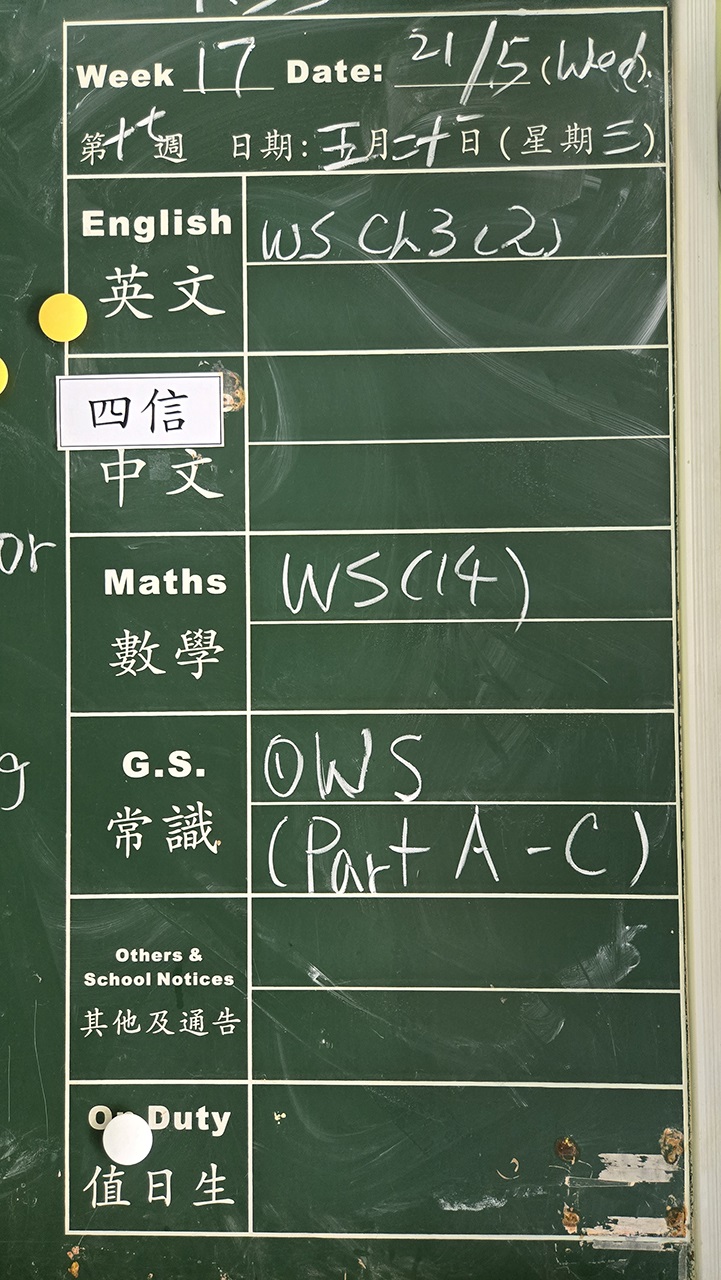 Week 17 Date: 21/5 (Wed).
第十七週 日期: 五月二十一日 (星期三)
English
WS Ch3 (2)
英文
四信
中文
Maths
WS (14)
數學
G.S.
①WS
常識
(Part A - C)
Others &
School Notices
其他及通告
On Duty
值日生
or
g